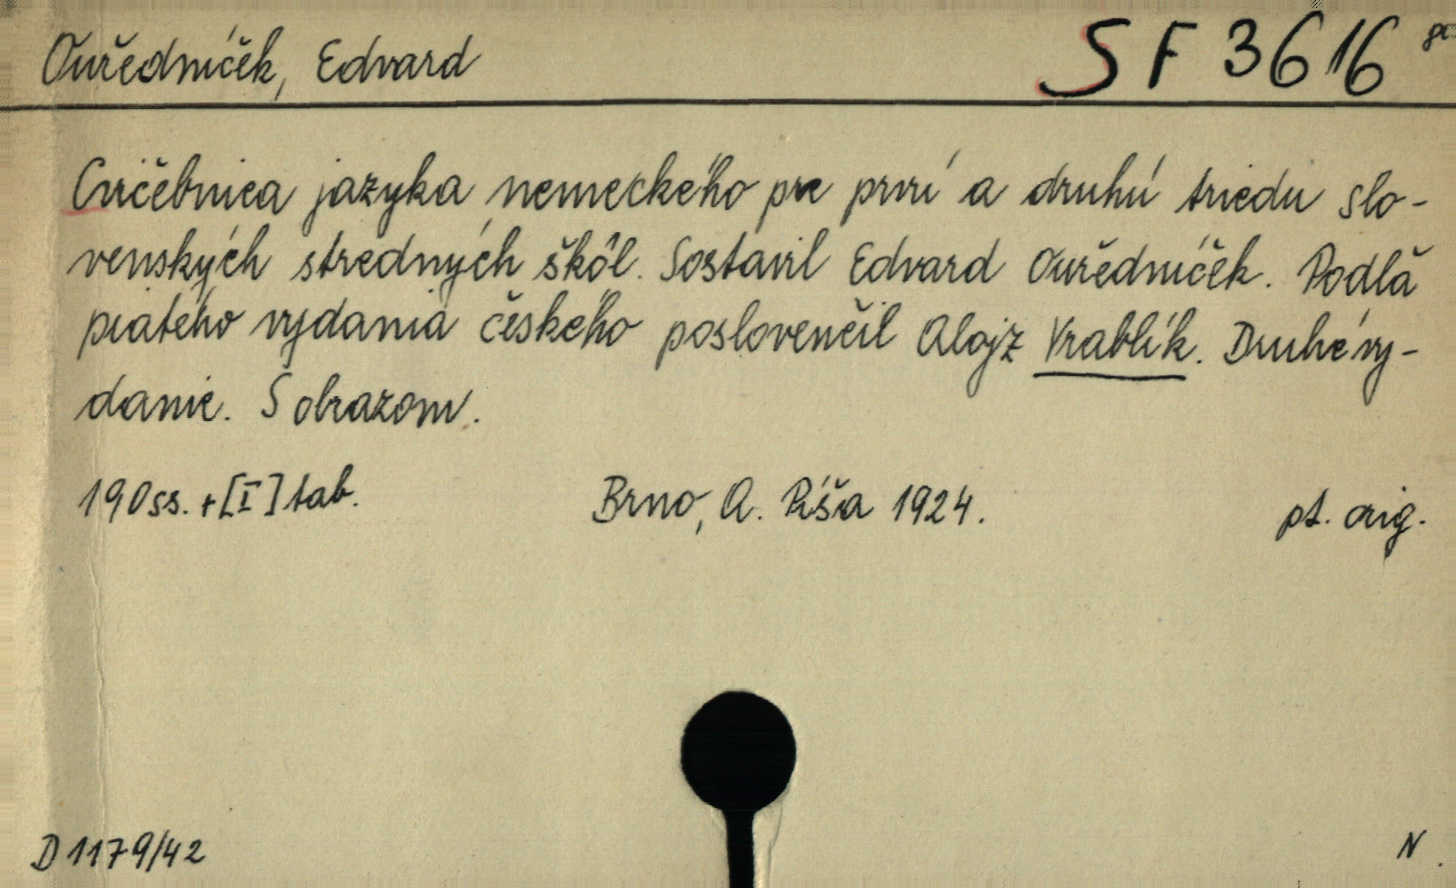 Ouředníček, Edvard
SF 3616
Cvičebnica jazyka nemeckého pre prvú a druhú triedu slo-
venských stredných škôl. Sostavil Edvard Ouředníček. Podľa
piateho vydania českého poslovenčil Alojz Vrablík. Druhé vy-
danie. S obrazom.
190 ss. + [I] tab. Brno, A. Píša 1924. pt. orig.
D 1179/42 N.